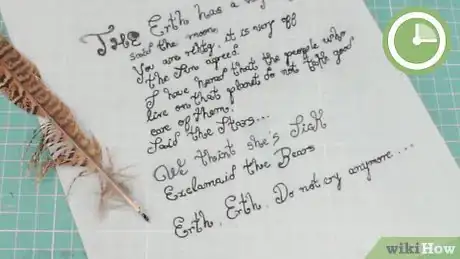 THE Erth has a
said the moon.
You are rihtg, it is very off
the Sun agree.
I have hered that the people who
live on that planet do not take good
care of them.
Said the Stars...
We thint she's Sick
Exclamaid the Bears
Erth, Erth, Do not cry anymore....
wikiHow